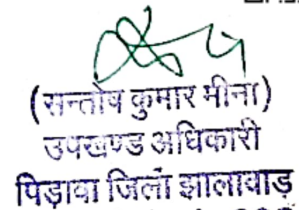 (सन्तोष कुमार मीना)
उपखण्ड अधिकारी
पिड़ावा जिला झालावाड़